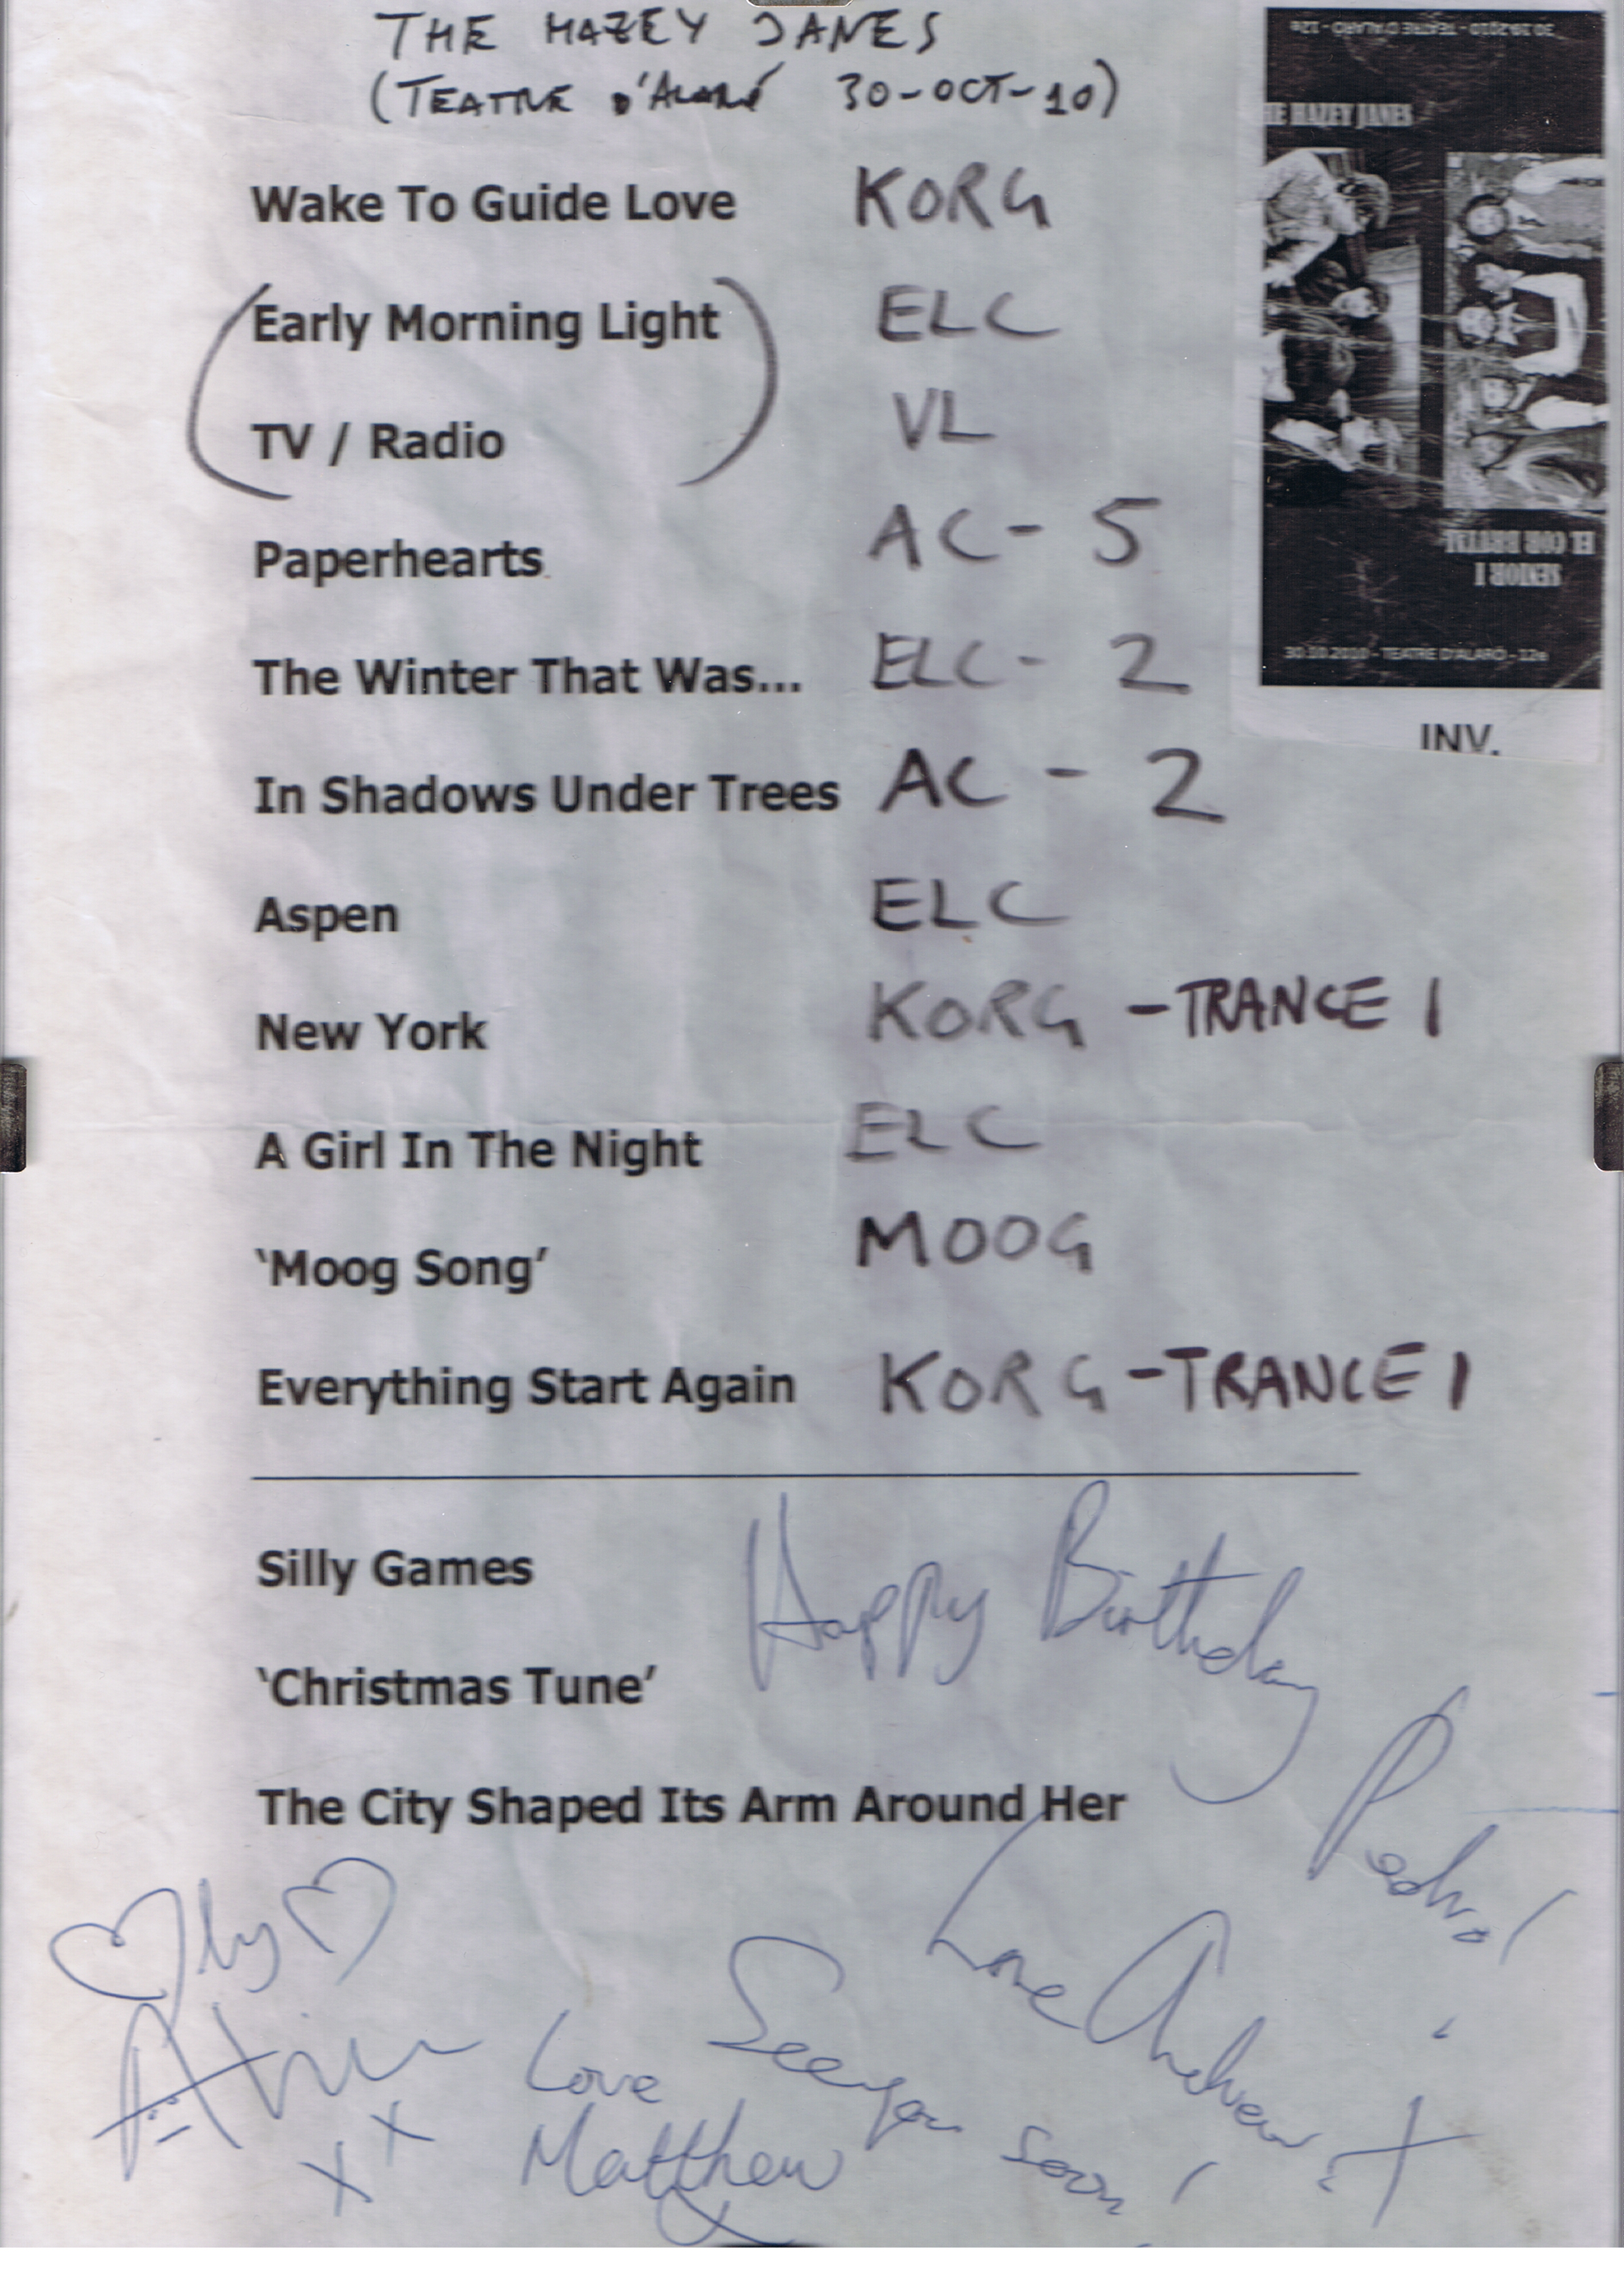 THE HAZEY JANES
(TEATRE D'ALARÓ 30-OCT-10)
30.10.2010 - TEATRE D'ALARÓ - 12e
HE HAZEY JANES
SENIOR I
EL COR BRUTAL
30.10.2010 - TEATRE D'ALARÓ - 12e
INV.
Wake To Guide Love KORG
(Early Morning Light ELC
TV / Radio) VL
Paperhearts AC - 5
The Winter That Was... ELC - 2
In Shadows Under Trees AC - 2
Aspen ELC
New York KORG - TRANCE 1
A Girl In The Night ELC
'Moog Song' MOOG
Everything Start Again KORG - TRANCE 1
Silly Games
'Christmas Tune'
The City Shaped Its Arm Around Her
Happy Birthday
Pedro!
Love Andrew
See you soon!
Love
Matthew
x x